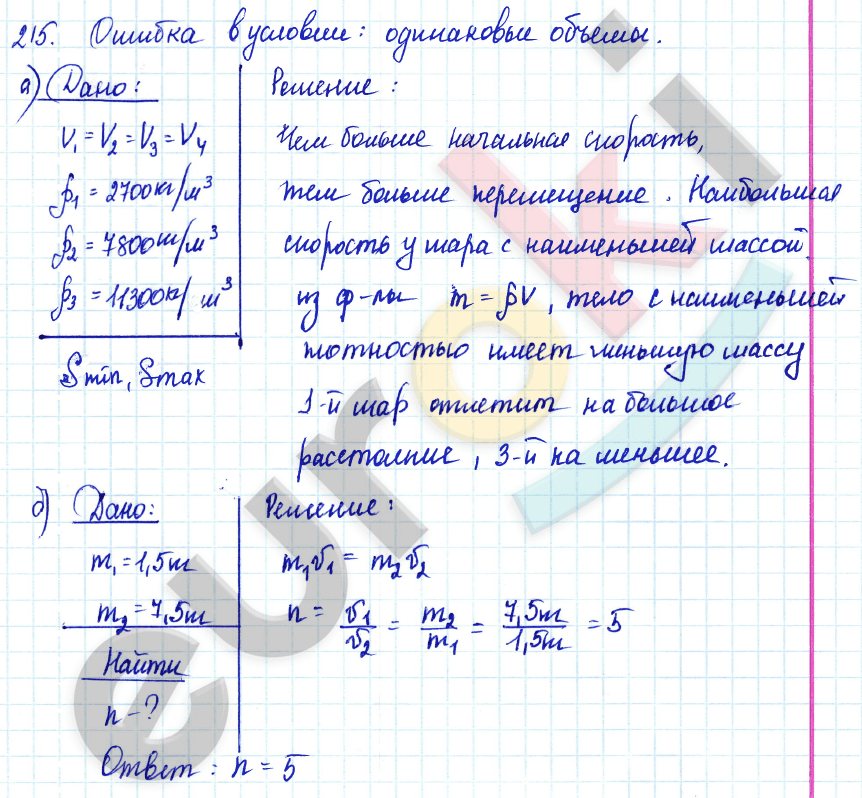 215. Ошибка в условии: одинаковые объемы.
а) Дано:
V₁ = V₂ = V₃ = V₄
ρ₁ = 2700 кг/м³
ρ₂ = 7800 кг/м³
ρ₃ = 11300 кг/м³
Smin, Smax
Решение:
Чем больше начальная скорость,
тем больше перемещение. Наибольшая
скорость у шара с наименьшей массой.
из ф-лы m = ρV, тело с наименьшей
плотностью имеет меньшую массу
1-й шар отлетит на большое
расстояние, 3-й на меньшее.
б) Дано:
m₁ = 1,5т
m₂ = 7,5т
Найти
n - ?
Решение:
m₁v₁ = m₂v₂
n = v₁/v₂ = m₂/m₁ = 7,5т/1,5т = 5
Ответ: n = 5
euroki